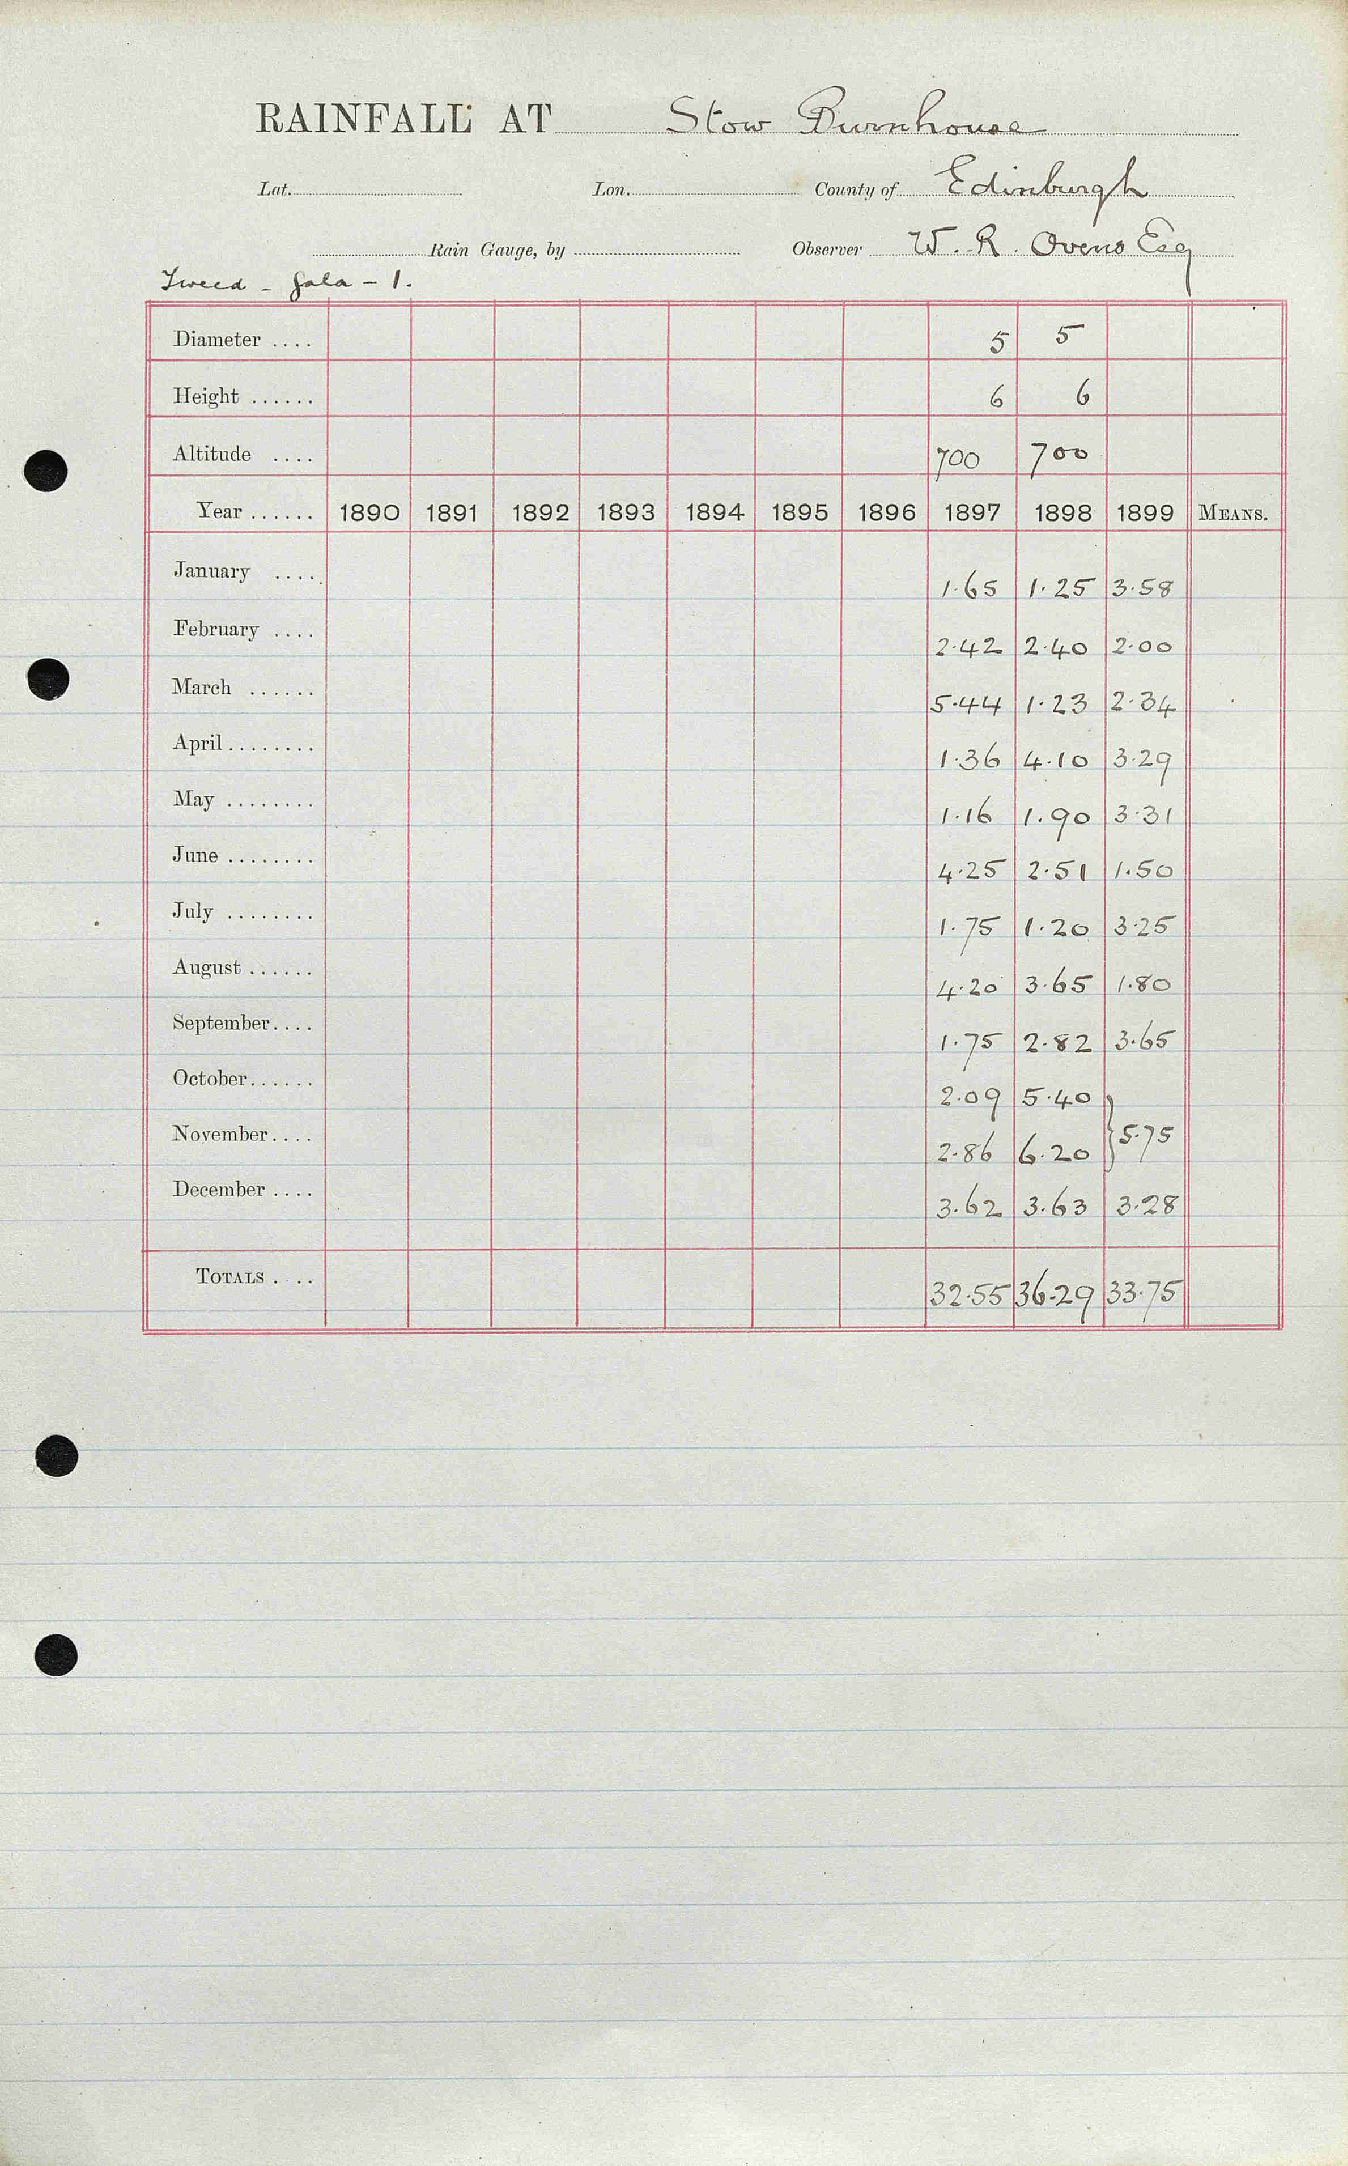 RAINFALL AT Stow Burnhouse
Lat. Lon. County of Edinburgh
Rain Gauge, by Observer W. R. Ovens Esq
Tweed - Gala - 1.
Diameter .... 5 5
Height ...... 6 6
Altitude .... 700 700
Year ...... 1890 1891 1892 1893 1894 1895 1896 1897 1898 1899 MEANS.
January .... 1.65 1.25 3.58
February .... 2.42 2.40 2.00
March ...... 5.44 1.23 2.34
April ........ 1.36 4.10 3.29
May ........ 1.16 1.90 3.31
June ........ 4.25 2.51 1.50
July ........ 1.75 1.20 3.25
August ...... 4.20 3.65 1.80
September.... 1.75 2.82 3.65
October...... 2.09 5.40
November.... 2.86 6.20 } 5.75
December .... 3.62 3.63 3.28
TOTALS .... 32.55 36.29 33.75